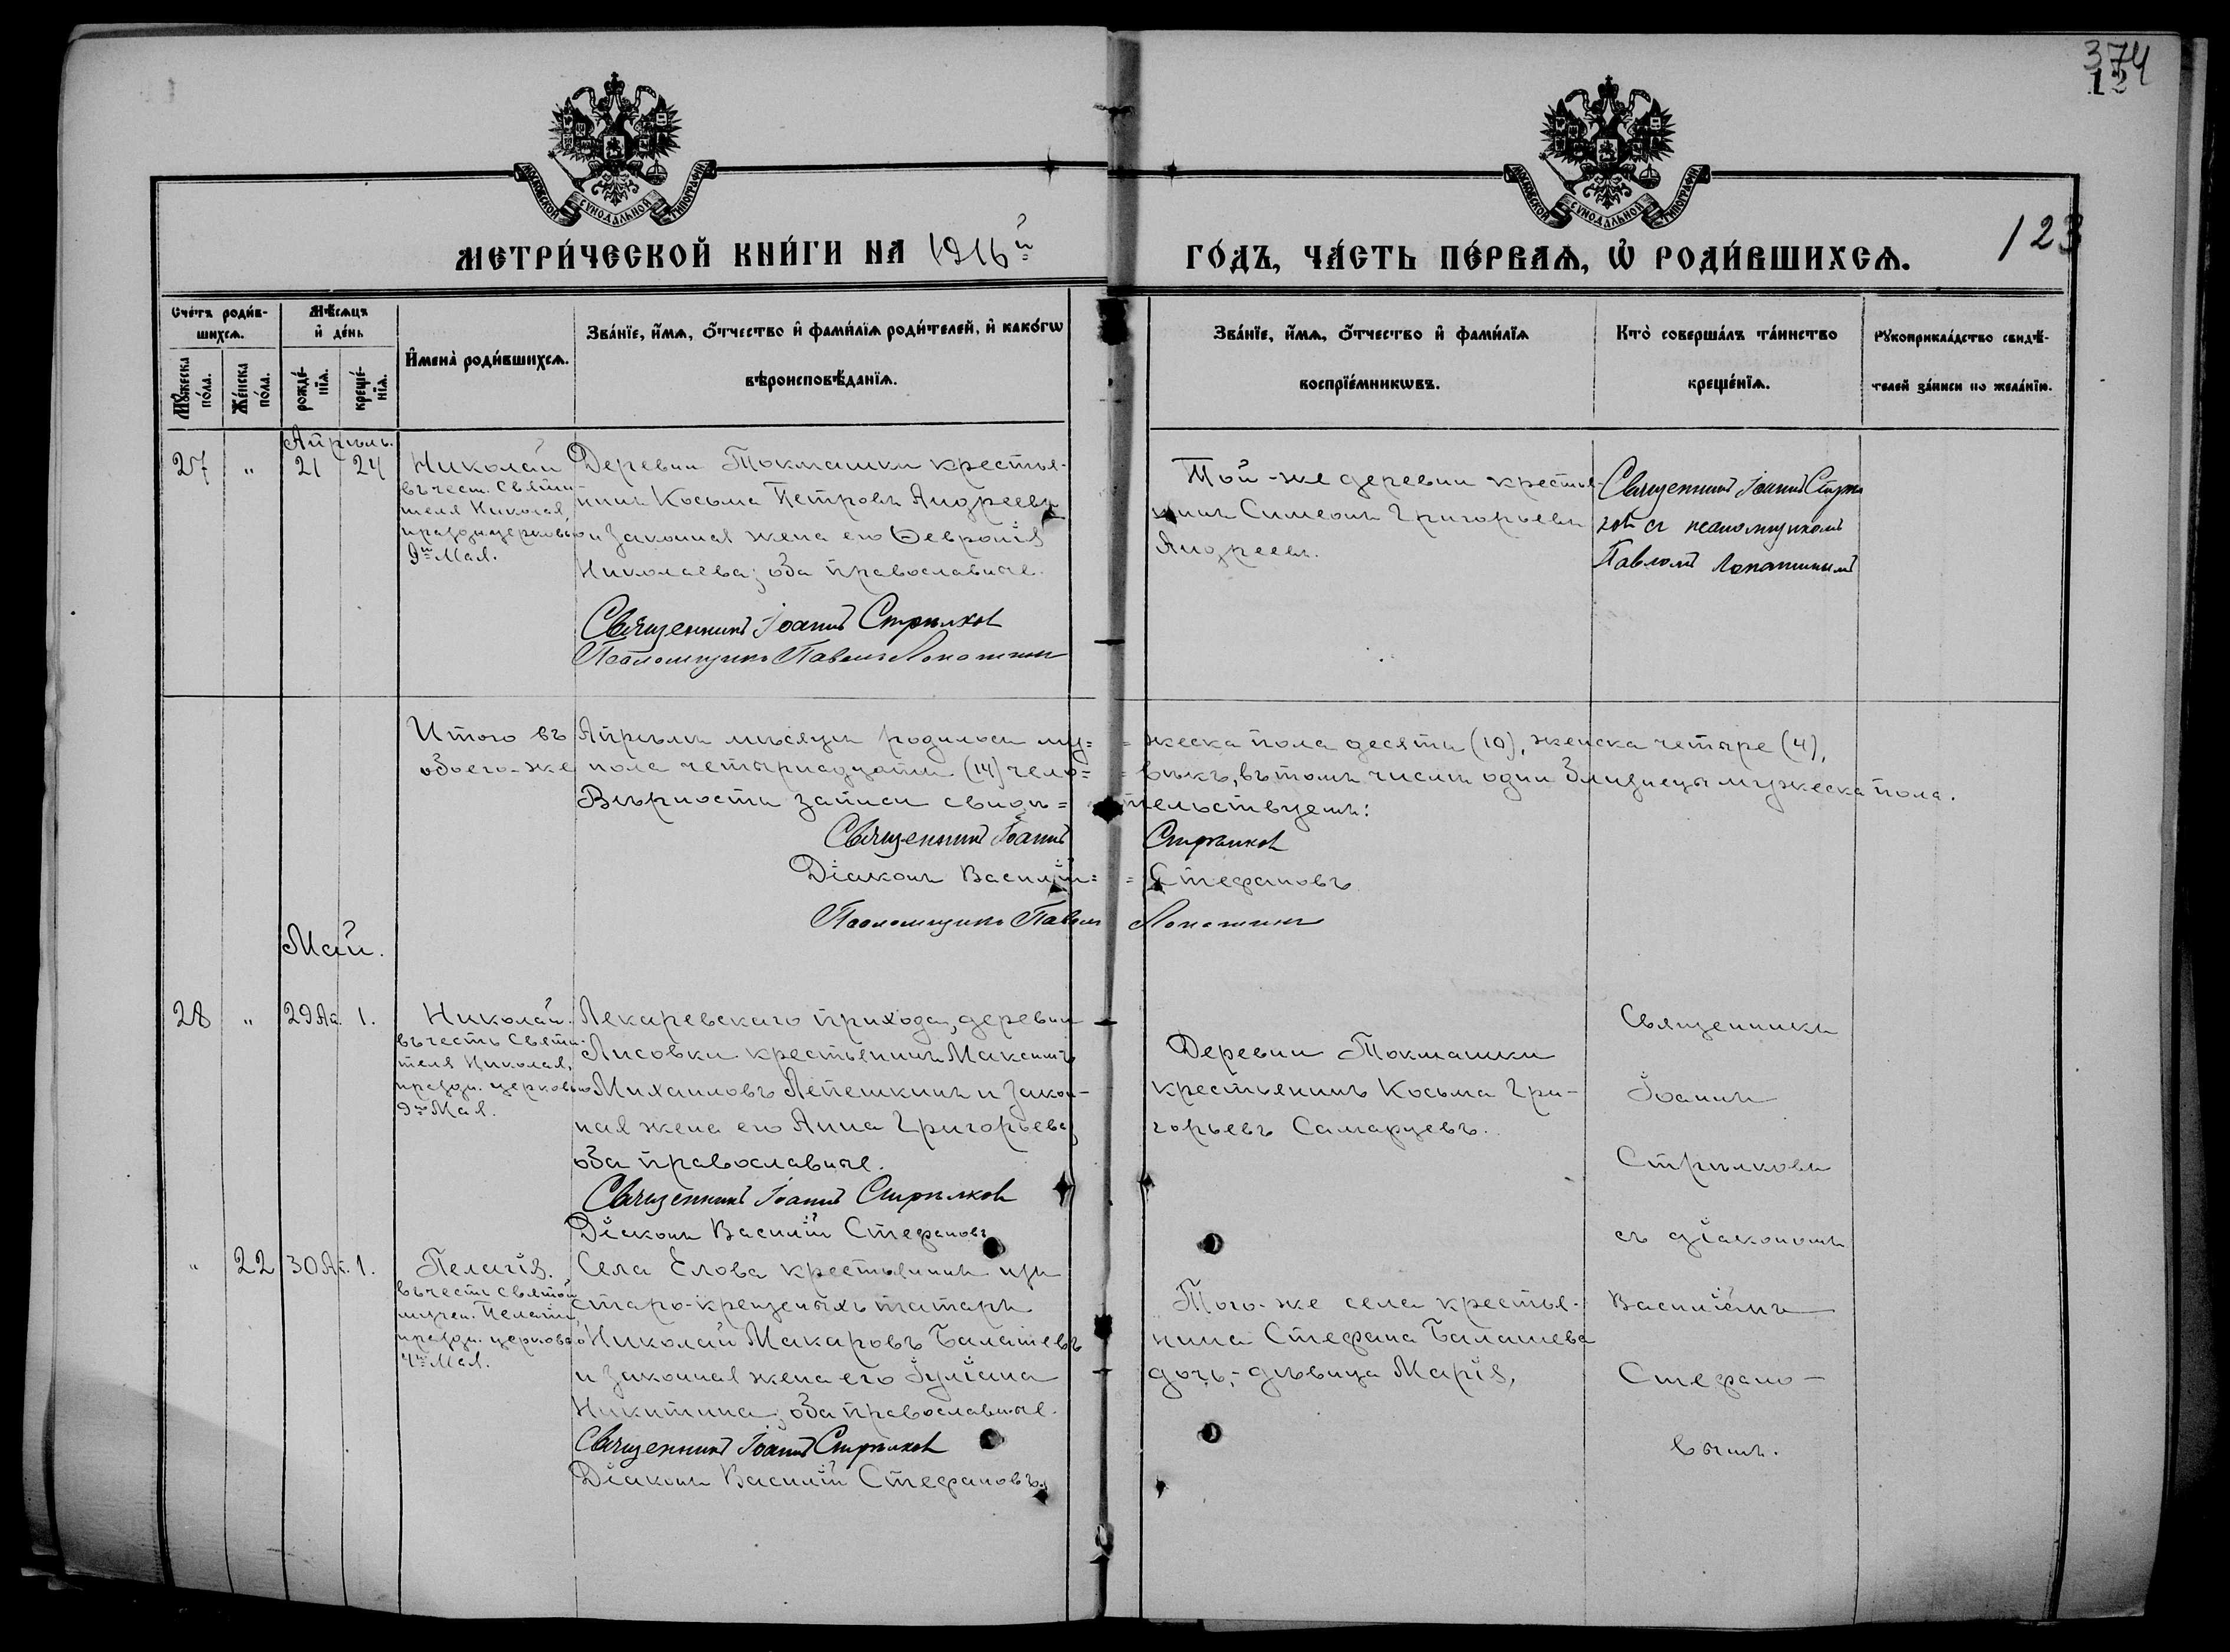 374
12
МОСКОВСКОЙ СѴНОДАЛЬНОЙ ТИПОГРАФІИ
МОСКОВСКОЙ СѴНОДАЛЬНОЙ ТИПОГРАФІИ
123
МЕТРИ́ЧЕСКОЙ КНИ́ГИ НА 1916й
ГО́ДЪ, ЧА́СТЬ ПЕ́РВАѦ, Ѽ РОДИ́ВШИХСѦ.
Сче́тъ роди́в-
шихсѧ.
Мꙋ́жеска пола.
Же́нска по́ла.
Мѣ́сѧцъ
и҆ де́нь
рожде́-
нїѧ.
креще́-
нїѧ.
И҆мена̀ роди́вшихсѧ.
Зва́нїе, и҆́мѧ, ѻ҆́тчество и҆ фами́лїѧ роди́телей, и҆ како́гѡ
вѣроисповѣ́данїѧ.
Зва́нїе, и҆́мѧ, ѻ҆́тчество и҆ фами́лїѧ
воспрїе́мникѡвъ.
Кто̀ соверша́лъ та́инство
креще́нїѧ.
Рꙋкоприкла́дство свидѣ́-
телей за́писи по жела́нїю.
Апрѣль.
27 " 21 24
Николай
въ чест. Святи-
теля Николая,
празднуе. церковью
9го Мая.
Деревни Токмашки крестья-
нинъ Косьма Петровъ Андреевъ
и законная жена его Ѳевронія
Николаева; оба православные.
Священникъ Іоаннъ Стрѣлков
Псаломщикъ Павелъ Лопаткин
Той-же деревни крестья-
нинъ Симеонъ Григорьевъ
Андреевъ.
Священникъ Іоаннъ Стрѣл
ков съ псаломщикомъ
Павломъ Лопаткинымъ
Итого въ Апрѣлѣ мѣсяцѣ родилось му= =жеска пола десять (10), женска четыре (4),
обоего-же пола четырнадцать (14) чело= =вѣкъ, въ томъ числѣ одни близнецы мужеска пола.
Вѣрность записи свидѣ= тельствуемъ:
Священникъ Іоаннъ Стрѣлков
Діаконъ Василій= =Стефановъ
Псаломщикъ Павелъ Лопаткин
Май.
28 " 29 Ап. 1.
Николай.
въ честь Святи-
теля Николая,
праздн. церковью
9го Мая.
Лекаревскаго прихода, деревни
Лисовки крестьянинъ Максимъ
Михаиловъ Лепешкинъ и закон-
ная жена его Анна Григорьева,
оба православные.
Священникъ Іоаннъ Стрѣлков
Діаконъ Василій Стефановъ
Деревни Токмашки
крестьянинъ Косьма Гри-
горьевъ Самарцевъ.
Священникъ
Іоаннъ
Стрѣлковъ
съ діакономъ
Василіемъ
Стефано-
вымъ.
" 22 30 Ап. 1.
Пелагія.
въ честь Святой
мучен. Пелагіи,
праздн. церковью
4го Мая.
Села Елова крестьянинъ изъ
старо-крещеныхъ татаръ
Николай Макаровъ Балашевъ
и законная жена его Іуліана
Никитина, оба православные.
Священникъ Іоаннъ Стрѣлков
Діаконъ Василій Стефановъ.
Того-же села крестья-
нина Стефана Балашева
дочь,-дѣвица Марія,